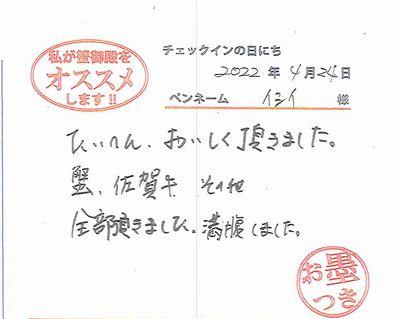 私が蟹御殿を
オススメ
します!!
チェックインの日にち
2022 年 4月 24日
ペンネーム イシイ 様
たいへん、おいしく頂きました。
蟹、佐賀牛 その他
全部頂きました、満腹しました。
お墨
つき